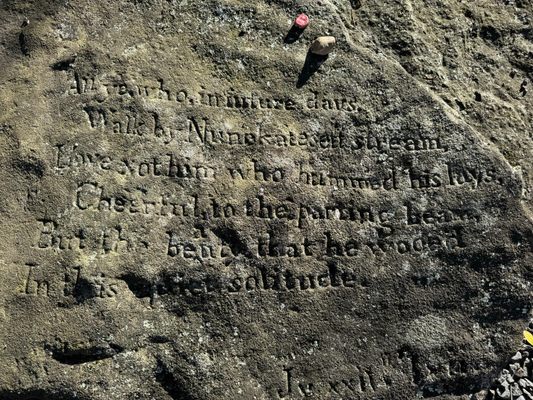 All ye who, in future days,
Walk by Nunckatesett stream
Love not him who hummed his lays
Cheerful to the parting beam,
But the beauty that he wooed
In this quiet solitude.